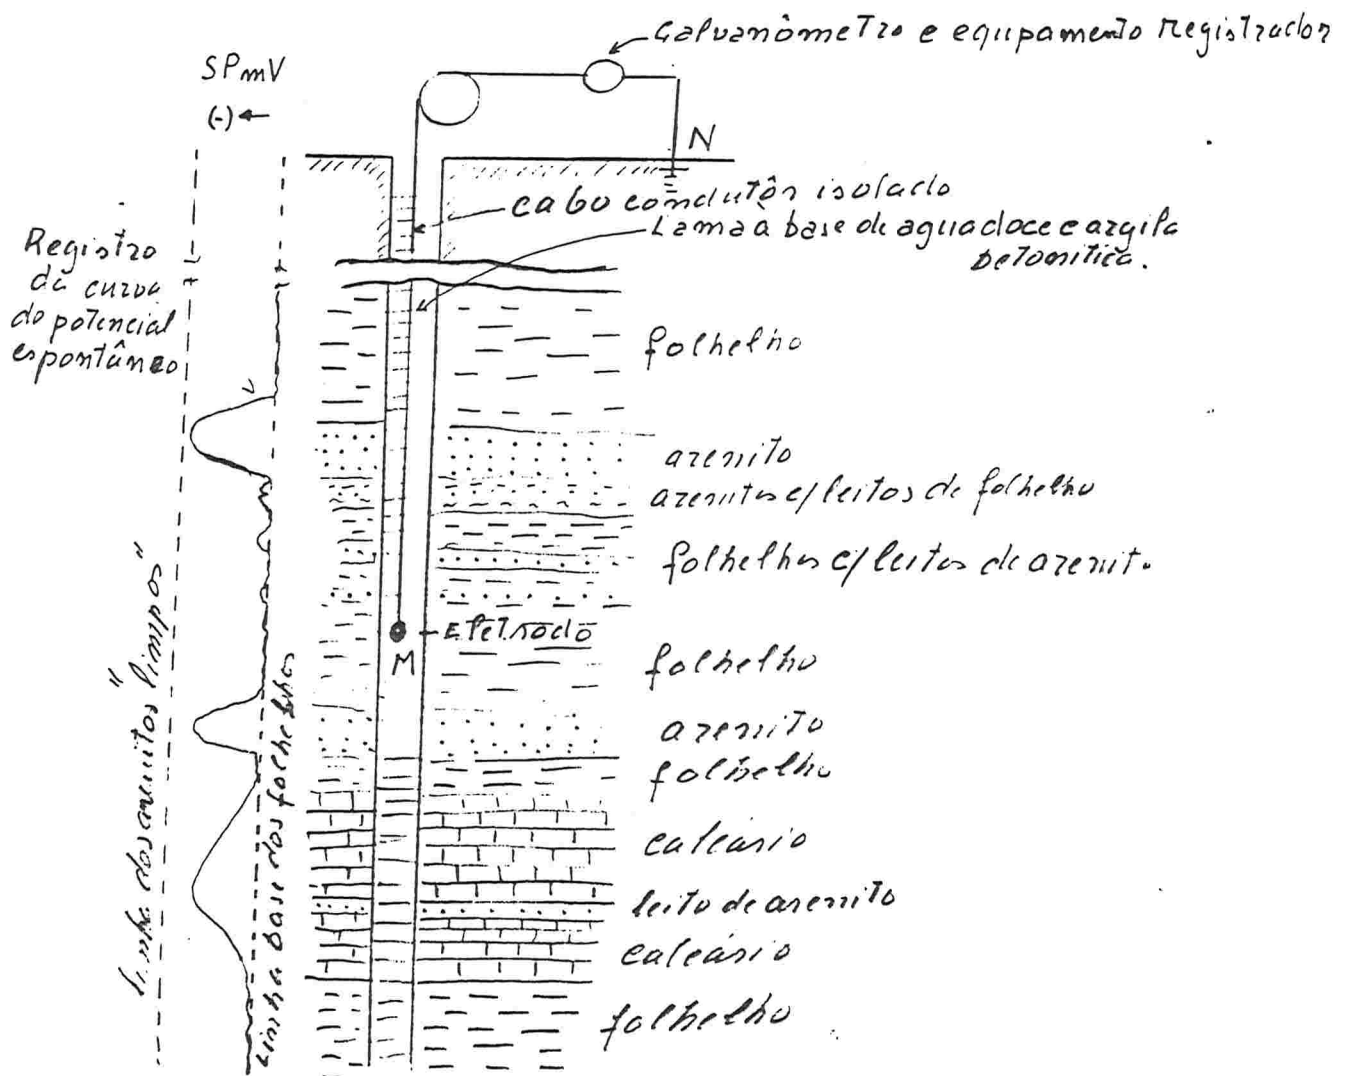 Galvanômetro e equipamento Registrador
SP mV
(-)
N
cabo condutôr isolado
Lama à base de agua doce e argila
betonitica.
Registro
da curva
do potencial
espontâneo
folhelho
arenito
arenitos c/ leitos de folhelho
folhelhos c/ leitos de arenit.
Eletrodo
M
folhelho
arenito
folhelho
calcário
leito de arenito
calcário
folhelho
Linha dos arenitos "limpos"
Linha base dos folhelhos